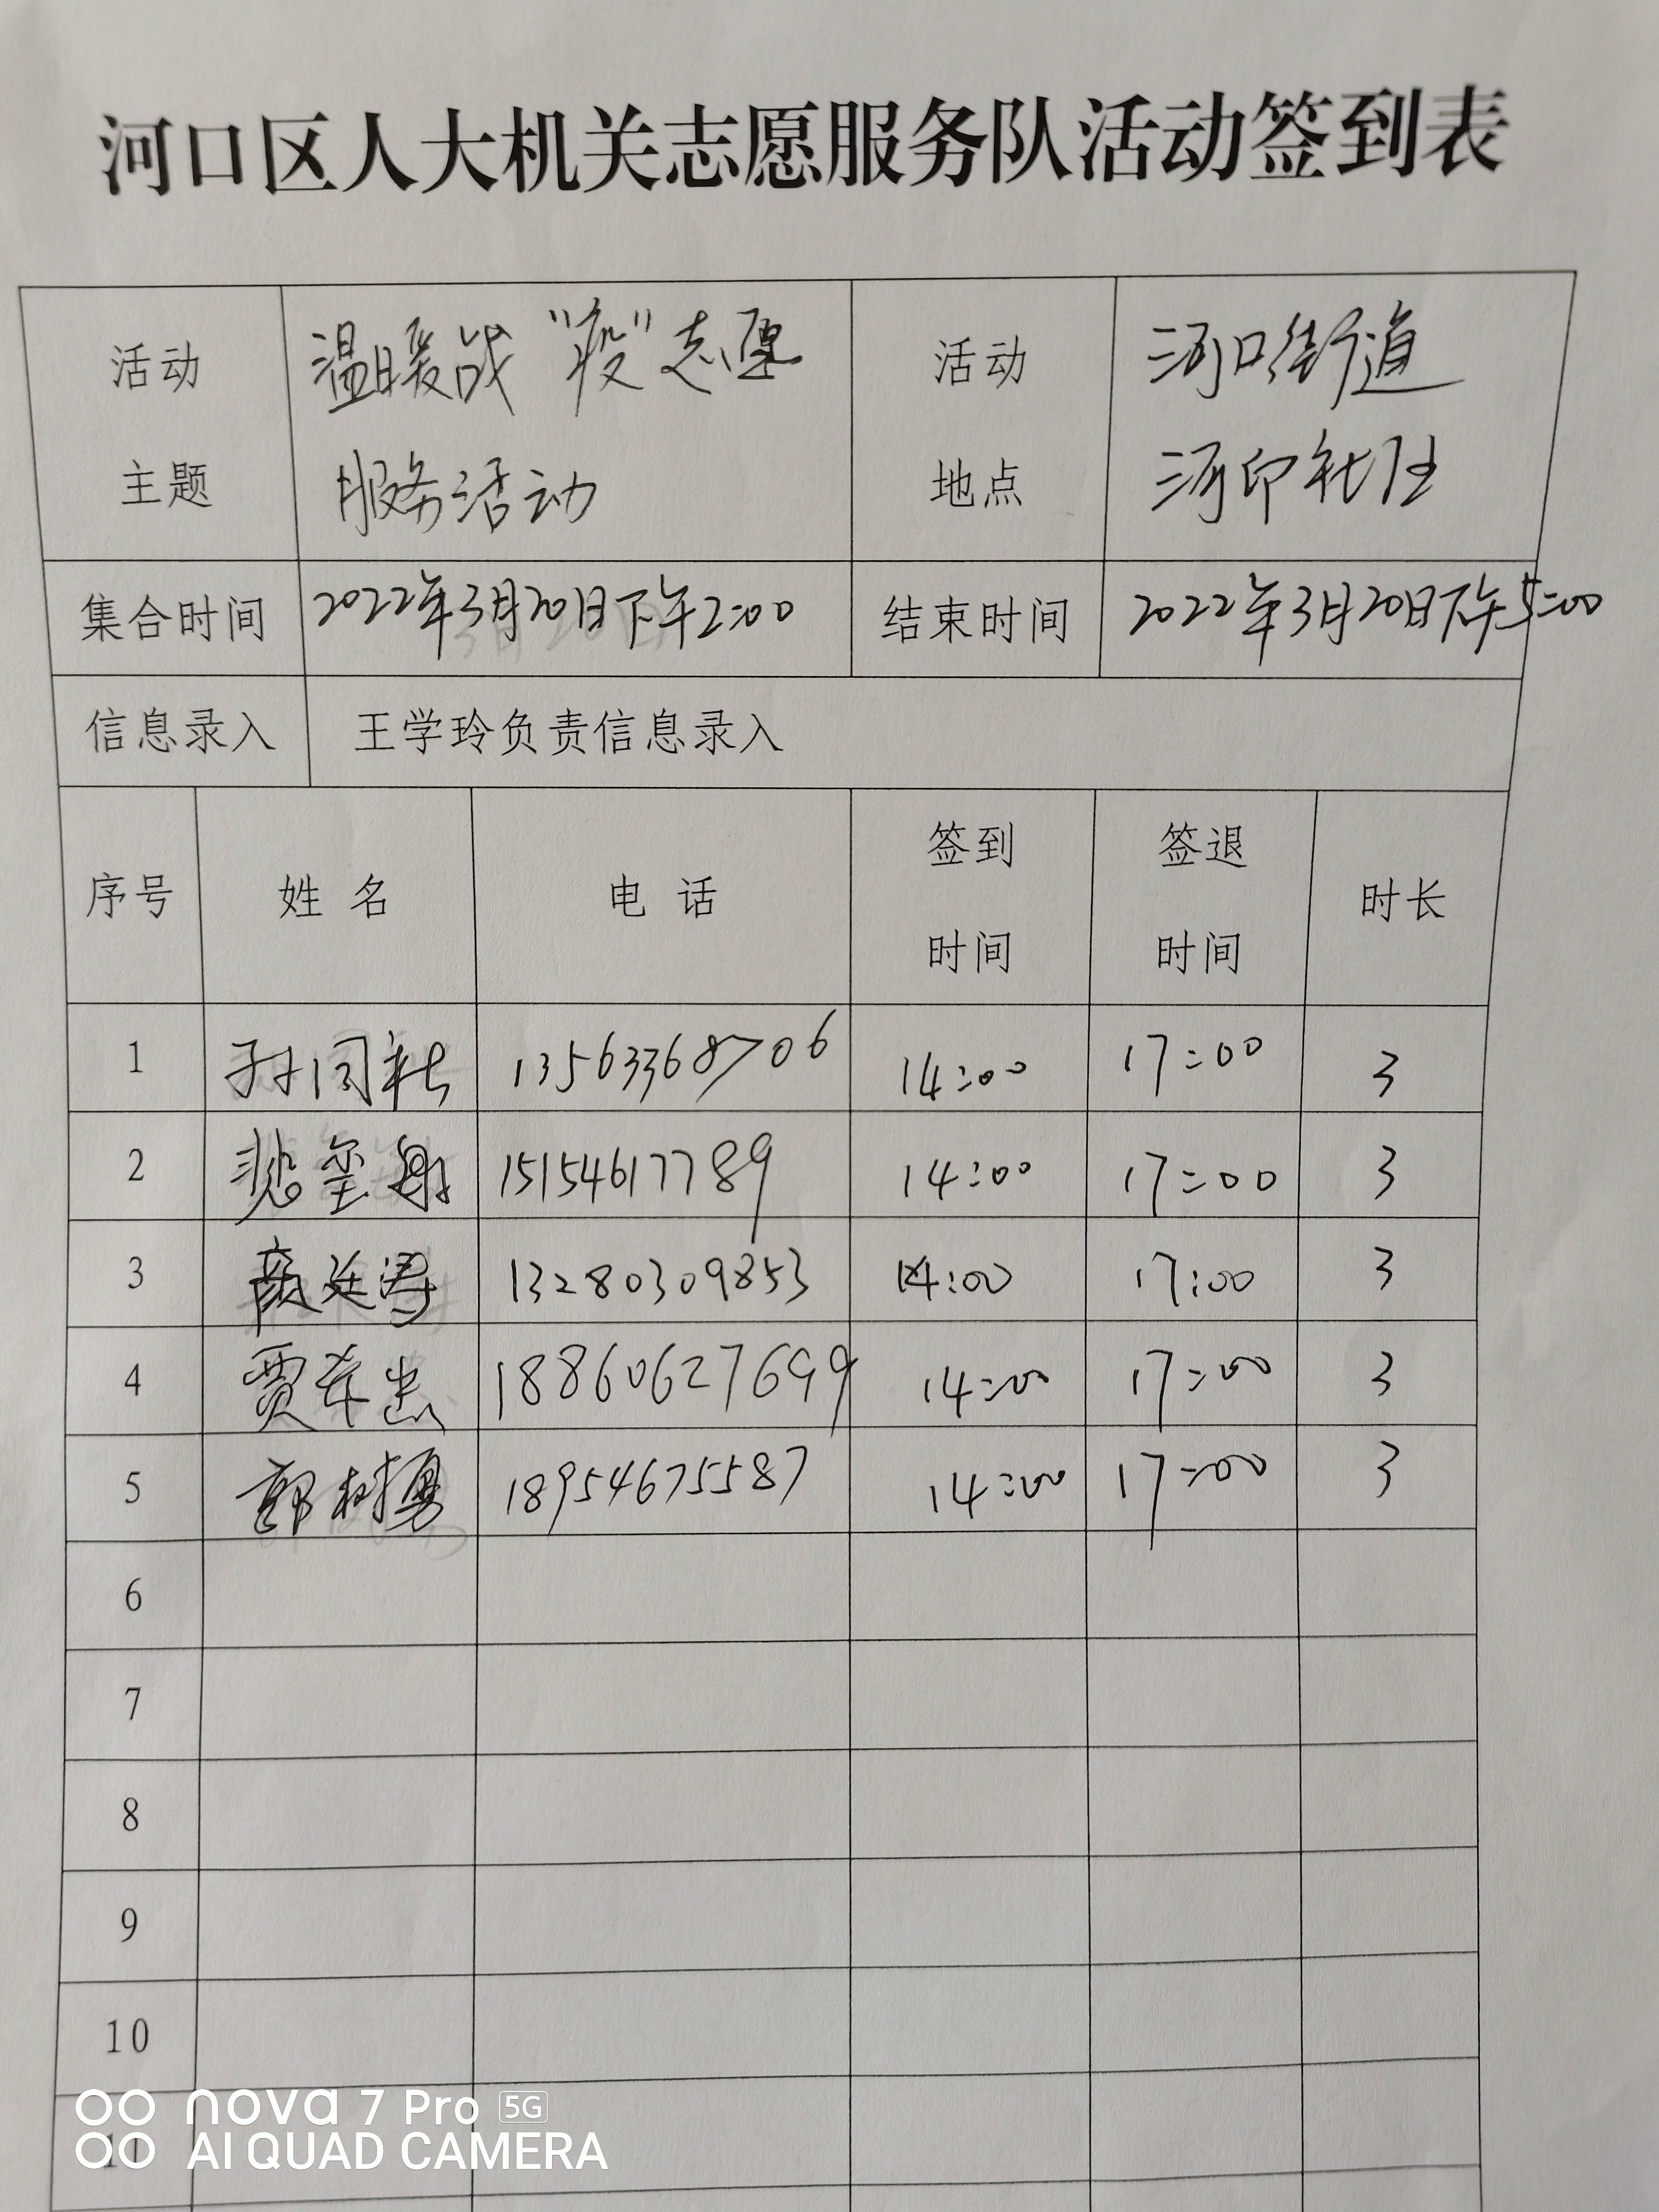 河口区人大机关志愿服务队活动签到表
活动 主题 温暖战“疫”志愿 服务活动 活动 地点 河口街道 河印社区
集合时间 2022年3月20日下午2:00 结束时间 2022年3月20日下午5:00
信息录入 王学玲负责信息录入
序号 姓名 电话 签到时间 签退时间 时长
1 孙同彬 13563368706 14:00 17:00 3
2 15154617789 14:00 17:00 3
3 颜廷涛 13280309853 14:00 17:00 3
4 贾 18860627699 14:00 17:00 3
5 郭树勇 18954675587 14:00 17:00 3
6
7
8
9
10
11
nova 7 Pro 5G
AI QUAD CAMERA